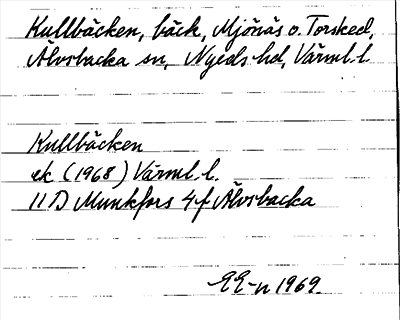 Kullbäcken, bäck, Mjönäs o. Torsked,
Älvsbacka sn, Nyeds hd, Värml. l.
Kullbäcken
ek (1968) Värml. l.
11 D Munkfors 4f Älvsbacka
EE-n 1969.